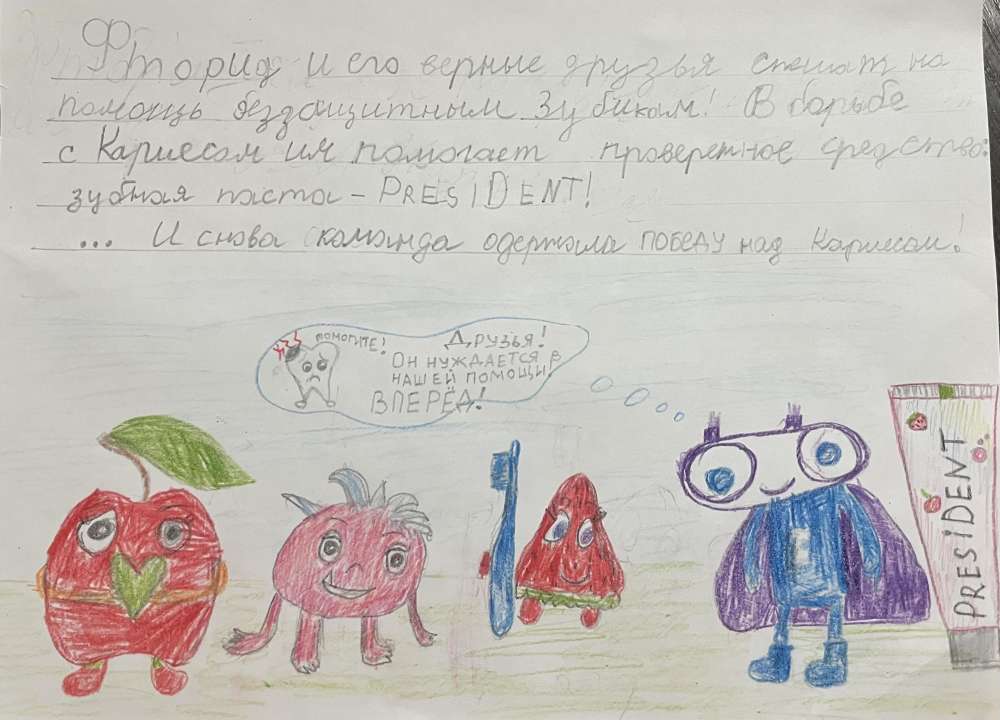 Фторид и его верные друзья спешат на
помощь беззащитным Зубикам! В борьбе
с Кариесом им помогает проверенное средство:
зубная паста - PRESIDENT!
... И снова команда одержала ПОБЕДУ над Кариесом!
ПОМОГИТЕ!
ДРУЗЬЯ!
ОН НУЖДАЕТСЯ В
НАШЕЙ ПОМОЩИ!
ВПЕРЁД!
PRESIDENT